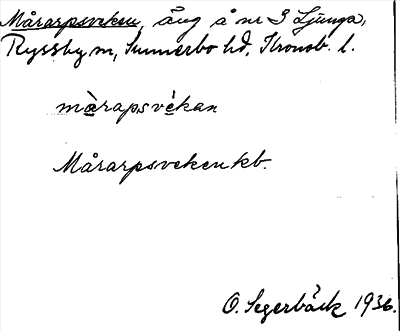 Mårarpsveken, äng å nr 3 Ljunga,
Ryssby sn, Sunnerbo hd, Kronob. l.
màrapsvèkan
Mårarpsveken kb.
O. Segerbäck 1936.